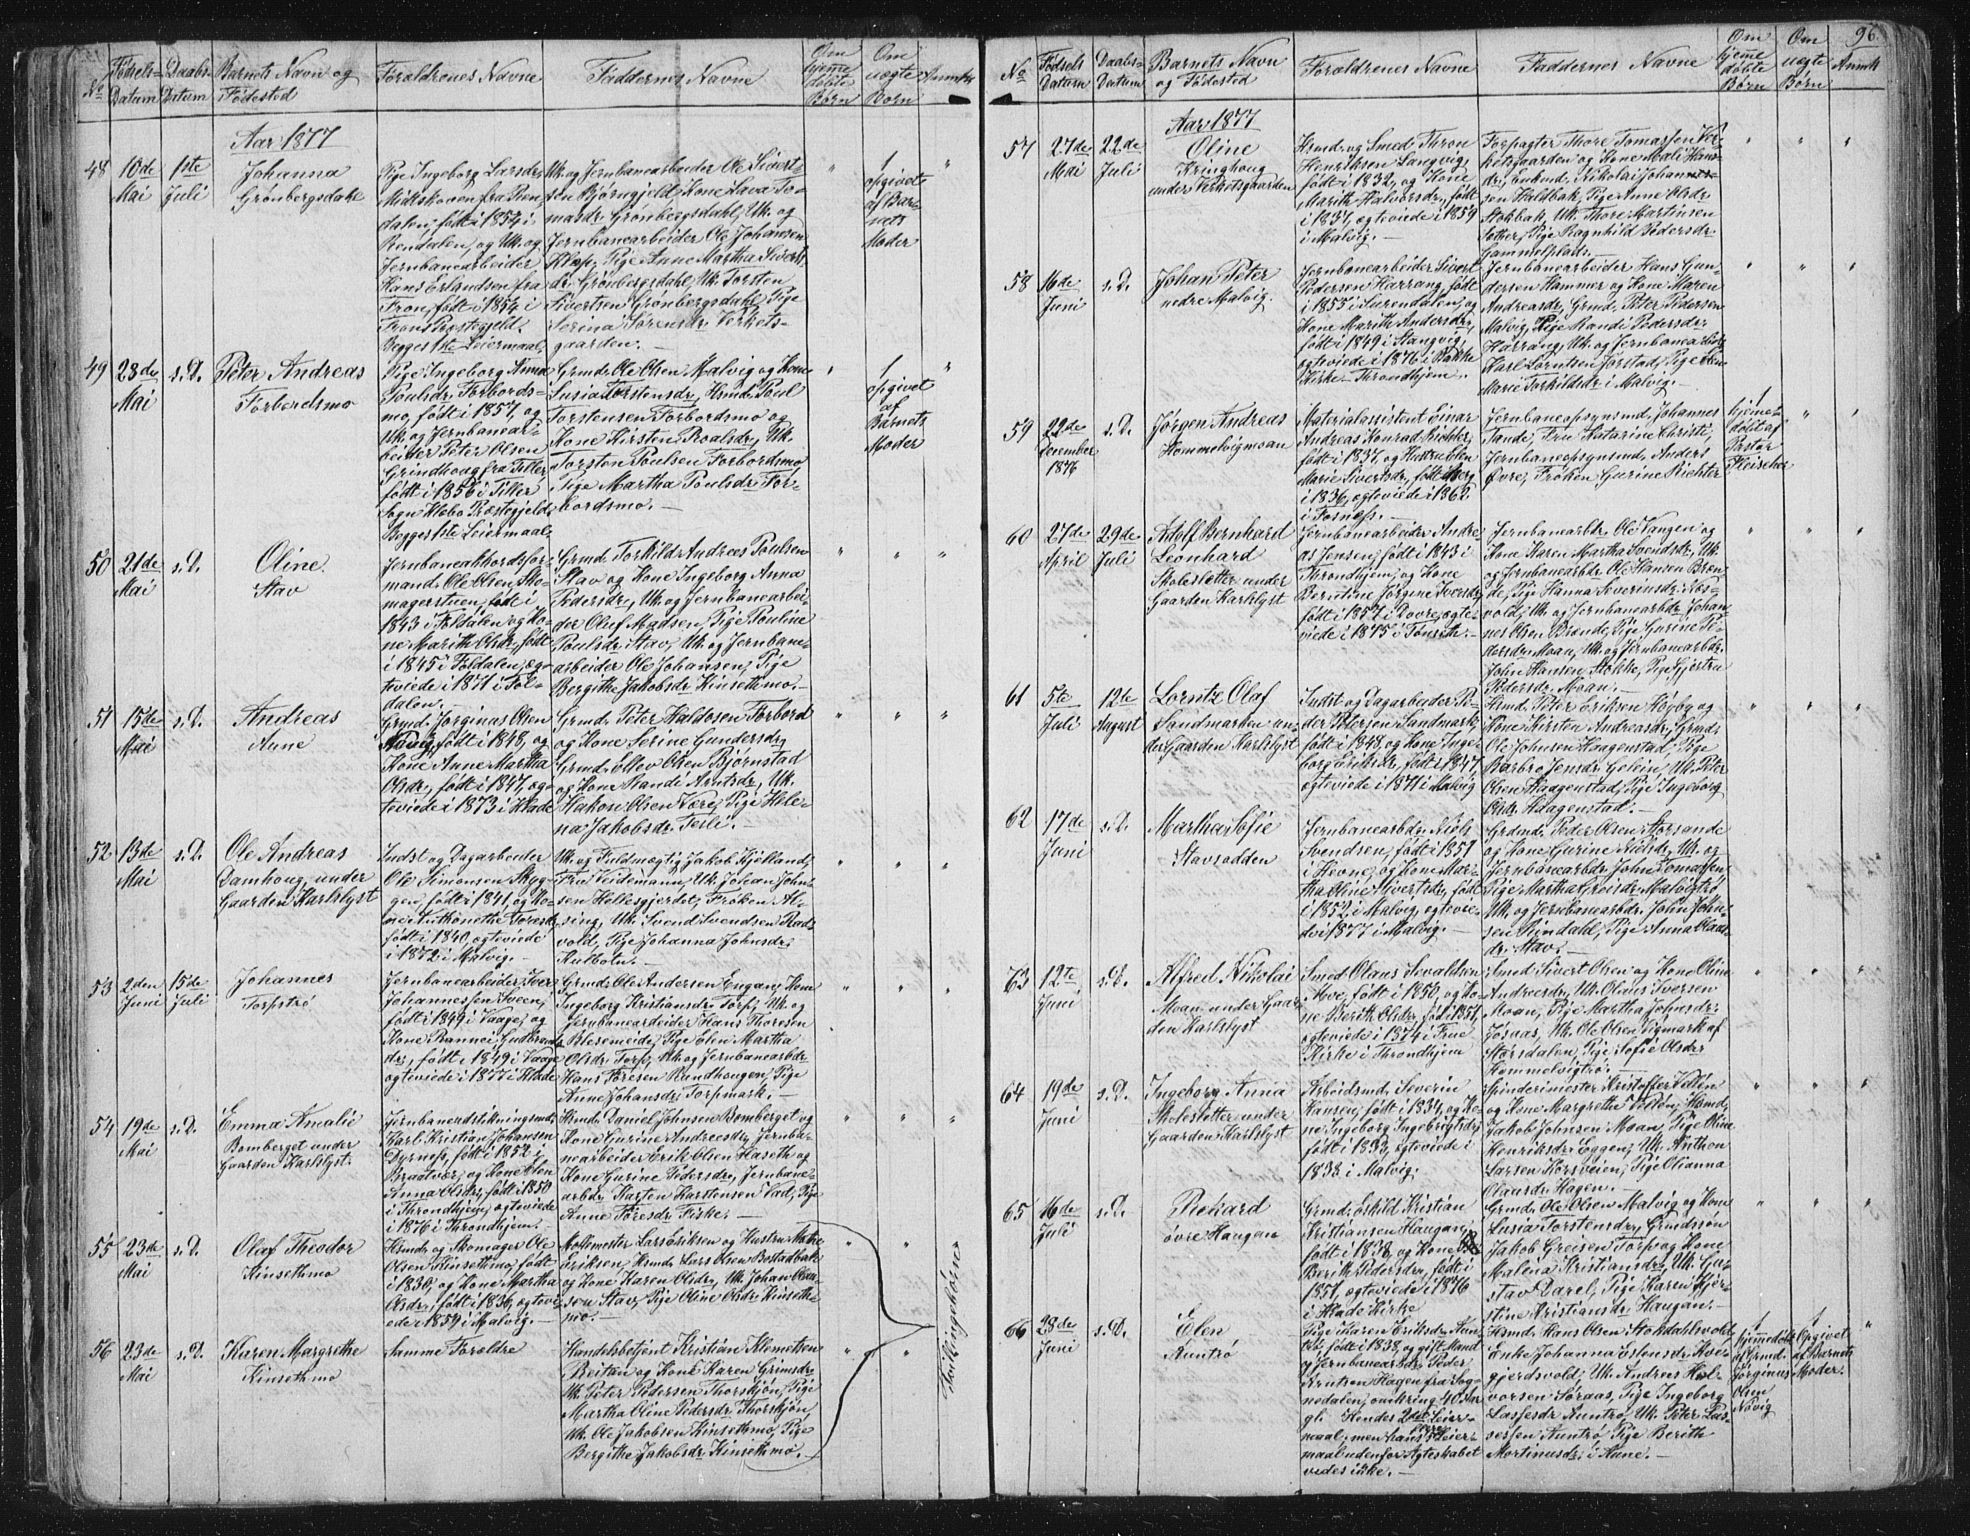 96.
No
Fødsels-
Datum
Daabs-
Datum
Barnets Navn og
Fødested
Forældrenes Navne
Faddernes Navne
Om
hjemme
døbte
Børn
Om
uægte
Børn
Anmk
Aar 1877
48
10de
Mai
1ste
Juli
Johanna
Grønbergsdahl
Pige Ingeborg Larsdr
Midtskoven fra Ren-
dalen, født i 1854 i
Rendalen, og Uk. og
Jernbanearbeider
Hans Erlandsen fra
Fron, født i 1854 i
Frons Præstegjeld.
Begges 1ste Leiermaal.
Uk. og Jernbanearbeider Ole Sivert-
sen Bjørngjeld, Kone Lava To-
masdr Grønbergsdahl, Uk. og
Jernbanearbeider Ole Johansen
Klop, Pige Anne Martha Siverts-
dr. Grønbergsdahl, Uk. Torsten
Sivertsen Grønbergsdahl, Pige
Serina Sørensdr. Verkets-
gaarden.
1
opgivet
af Bar-
nets
Moder
49
28de
Mai
s.D.
Peter Andreas
Forbordsmo
Pige Ingeborg Anna
Poulsdr. Forbords-
mo, født i 1857, og
Uk. og Jernbanear-
beider Peter Olsen
Grindhoug fra Tiller,
født i 1856 i Tiller
Sogn Klæbo Præstegjeld.
Begges 1ste Leiermaal.
Grmd. Ole Olsen Malvig og Kone
Lusia Torstensdr., Hsmd. Poul
Torstensen Forbordsmo og
Kone Kirsten Roalsdr., Uk.
Torsten Poulsen Forbordsmo
Pige Martha Poulsdr. For-
bordsmo.
1
opgivet
af
Barnets
Moder
50
21de
Mai
s.D.
Oline
Stav
Jernbaneakkordsfor-
mand Ole Olsen Sko-
magerstuen, født i
1843 i Foldalen og Ko-
ne Marith Olsdr., født
i 1845 i Foldalen, æg-
teviede i 1871 i Fol-
dalen.
Grmd. Torkild Andreas Poulsen
Stav og Kone Ingeborg Anna
Pedersdr., Uk. og Jernbanearbei-
der Oluf Madsen, Pige Pouline
Poulsdr. Stav, Uk. og Jernbane-
arbeider Ole Johansen, Pige
Bergithe Jakobsdr. Kinsethmo.
51
15de
Mai
s.D.
Andreas
Aune
Grmd. Jørginus Olsen
født i 1848, og
Kone Anne Martha
Olsdr., født i 1847, æg-
teviede i 1873 i Hlade
Grmd. Peter Haldosen Forbord
og Kone Serine Gundersdr.
Grmd. Ellev Olsen Bjørnstad
og Kone Randi Arntsdr., Uk.
Hakon Olsen Være, Pige Hele-
na Jakobsdr. Terli.
52
13de
Mai
s.D.
Ole Andreas
Damhoug under
Gaarden Karlslyst
Indst. og Dagarbeider
Ole Simonsen Skyg-
gen, født i 1841, og Ko-
ne Anthonethe Toresdr.
født i 1840, ægteviede
i 1872 i Malvig.
Uk. og Fuldmægtig Jakob Kjelland,
Fru Veidemann, Uk. Johan John-
sen Hellesgjerdet, Frøken Al-
sing, Uk. Svend Svendsen Rød-
vold, Pige Johanna Johnsdr.
53
2den
Juni
15de
Juli
Johannes
Torpstrø
Jernbanearbeider Iver
Johannessen Sveen,
født i 1849 i Vaage, og
Kone Rannei Gudbrands-
dr., født i 1849 i Vaage
ægteviede i 1877 i Hlade
Grmd. Ole Andersen Engan, Kone
Ingeborg Kristiansdr. Torp, Uk. og
Jernbanearbeider Hans Thoresen
Blesemeide, Pige Elen Martha
Olsdr. Torp, Uk. og Jernbanearbdr.
Hans Toresen Rundhougen, Pige
Anne Johansdr. Torpmark.
54
19de
Mai
s.D.
Emma Amalie
Bomberget under
Gaarden Karlslyst.
Karl Kristian Johansen
Dyrnes, født i 1852 i
Braatvær, og Kone Elen
Anna Olsdr., født i 1850
i Throndhjem, ægteviede
i 1876 i Throndhjem.
Hsmd. Daniel Johnsen Bomberget og
Kone Gurine Andreasdr., Jernba-
nearbeider Erik Olsen Haseth og
Kone Gurine Pedersdr., Jernbane-
arbdr. Karsten Karstensen Vad, Pige
Anne Toresdr. Fiske.
55
23de
Mai
s.D.
Olaf Theodor
Kinsethmo
Hsmd. og Skomager Ole
Olsen Kinsethmo, født
i 1830, og Kone Martha
Olsdr., født i 1836, ægtevi-
ede i 1859 i Malvig.
Møllemester Lars Eriksen og Hustru
Eriksen, Hsmd. Lars Olsen Bostadbak
og Kone Karen Olsdr., Uk. Johan Olaus-
sen Stav, Pige Oline Olsdr. Kinseth-
mo.
56
23de
Mai
s.D.
Karen Margrethe
Kinsethmo
Samme Forældre
Handelsbetjent Kristian Klemetsen
Reitan og Kone Karen Grimsdr.
Uk. Peter Pedersen Thorskjøn, Pige
Martha Oline Pedersdr. Thorskjøn,
Uk. Ole Jakobsen Kinsethmo, Pige
Bergitha Jakobsdr. Kinsethmo.
Tvillingsødskene
No
Fødsels
Datum
Daabs-
Datum
Barnets Navn
og Fødested
Forældrenes Navne
Faddernes Navne
Om
hjeme
døbte
Børn
Om
uægte
Børn
Anmk
Aar 1877
57
27de
Mai
22de
Juli
Oline
Kringhoug
under Verketsgaarden
Hsmd. og Smed Thron
Henriksen Langvig,
født i 1832, og Kone
Marith Halvorsdr., født
i 1837, ægteviede i 1859
i Malvig.
Forpagter Thore Tomassen Ver-
ketsgaarden og Kone Mali Hans-
dr., Enkmd. Nikolai Johannes-
sen Haldbak, Pige Anne Olsdr.
Stokbak, Uk. Thore Martinsen
Sother, Pige Ragnhild Pedersdr.
Gammelplads.
58
16de
Juni
s.D.
Johan Peter
nedre Malvig.
Jernbanearbeider Sivert
Pedersen Harrang, født
i 1855 i Surendalen, og
Kone Marith Andersdr.,
født i 1849 i Stangvig,
ægteviede i 1876 i Bakke
Kirke Throndhjem.
Jernbanearbeider Hans Gun-
dersen Hammer og Kone Maren
Andreasdr., Grmd. Peter Pedersen
Malvig, Pige Randi Pedersdr.
Harrang, Uk. og Jernbanearbdr.
Karl Lorntsen Forstad, Pige Elen
Marie Torkildsdr. i Malvig.
59
22de
December
1876
s.D.
Jørgen Andreas
Hommelvigmoan
Materialassistent Einar
Andreas Konrad Richter,
født i 1837, og Hustru Elen
Marie Sivertsdr., født i Berg
i 1836, ægteviede i 1862
i Fosnæs.
Jernbaneopsynsmd. Johannes
Tande, Fru Katarine Christi,
Jernbaneopsynsmd. Anders
Øvre, Frøken Gurine Richter
1
hjemme-
døbt af
Pastor
Fleischer
60
27de
April
29de
Juli
Adolf Bernhard
Leonhard
Skolesletter under
Gaarden Karlslyst
Jernbanearbeider Andre-
as Jensen, født i 1843 i
Throndhjem, og Kone
Berntine Jørgine Iversdr.
født i 1857 i Dovre, ægte-
viede i 1875 i Tønseth.
Jernbanearbdr. Ole Vangen og
Kone Karen Martha Svendsdr., Uk.
og Jernbanearbdr. Ole Hansen Bræn-
de, Pige Hanna Severinsdr. Næs-
vold, Uk. og Jernbanearbdr. Johan-
nes Olsen Brænde, Pige Gurine Pe-
dersdr. Moan, Uk. og Jernbanearbdr.
John Hansen Stokke, Pige Gjertru
Pedersdr. Moan.
61
5te
Juli
12te
August
Lorntz Olaf
Sandmarken un-
der Gaarden Karlslyst
Indst. og Dagarbeider Pe-
der Petersen Sandmark,
født i 1848, og Kone Inge-
borg Eriksdr., født i 1847,
ægteviede i 1871 i Malvig
Hsmd. Peter Eriksen Høyby og
Kone Kirsten Andreasdr., Grmd.
Ole Johnsen Haagenstad, Pige
Barbro Jensdr. Gelein, Uk. Peter
Olsen Haagenstad, Pige Ingeborg
Olsdr. Haagenstad.
62
17de
Juni
s.D.
Martha Sofie
Stavsødden
Jernbanearbdr. Niels
Svendsen, født i 1857
i Hevne, og Kone Mar-
tha Oline Sivertsdr., født
i 1852 i Malvig, ægtevie-
de i 1877 i Malvig.
Grdmd. Peder Olsen Storsande
og Kone Gurine Nielsdr., Uk. og
Jernbanearbdr. John Tomassen,
Pige Martha Greisdr. Malvigtrø
Uk. og Jernbanearbdr. John John-
sen Rindahl, Pige Anna Olaus-
dr. Stav.
63
12te
Juni
s.D.
Alfred Nikolai
Moan under Gaar-
den Karlslyst
Smed Olaus Sevaldsen
Moe, født i 1850, og Ko-
ne Berith Olsdr., født i 1851,
ægteviede i 1874 i Frue
Kirke i Throndhjem
Smed Sivert Olsen og Kone Oline
Andreasdr., Uk. Olaus Iversen
Moan, Pige Martha Johnsdr.
Jøsaas, Uk. Ole Olsen Vigmark af
Størsdalen, Pige Sofie Olsdr.
Hommelvigtrø.
64
19de
Juni
s.D.
Ingeborg Anna
Skolesletter under
Gaarden Karlslyst
Arbeidsmd. Severin
Hansen, født i 1834, og Ko-
ne Ingeborg Ingebrigtsdr.,
født i 1833, ægteviede i
1858 i Malvig.
Spinderimester Kristoffer Vedlen
og Kone Margrethe Vedlen, Hsmd.
Jakob Johnsen Moan, Pige Oline
Henriksdr. Eggen, Uk. Anthon
Larsen Korsveien, Pige Olianna
Olausdr. Hagen.
65
16de
Juli
s.D.
Richard
øvre Haugan
Grmd. Eskild Kristian
Kristiansen Haugan,
født i 1838, og Kone
Berith Pedersdr., født i
1851, ægteviede i 1876
i Hlade Kirke
Grmd. Ole Olsen Malvig og Kone
Lusia Torstensdr., Grmdssøn
Jakob Greisen Torp og Kone
Malena Kristiansdr., Uk. Gu-
stav Darel, Pige Karen Kjer-
stine Kristiansdr. Haugan.
66
23de
Juni
s.D.
Elen
Auntrø
Pige Karen Eriksdr. Aun-
trø, født i 1838, og gift Mand
og Jernbanearbdr. Peder
Knutsen Hagen fra Sog-
nedalen, omkring 40 Aar
gl. Hendes 2det Leier-
maal, men hans 1ste Leier-
maal udenfor Ægteskabet
vides ikke.
Hsmd. Hans Olsen Stokdahlsvold,
Enke Johanna Estensdr. Kve-
gjerdsvold, Uk. Andreas Hal-
vorsen Søraas, Pige Ingeborg
Lassesdr. Auntrø, Uk. Peter Las-
sesen Auntrø Pige Berith
Mortinusdr. i Aune.
1
hjemmedøbt
af Grmd.
Jørginus
Olsen
Nævig
1
Opgivet
af Barnets
Moder.